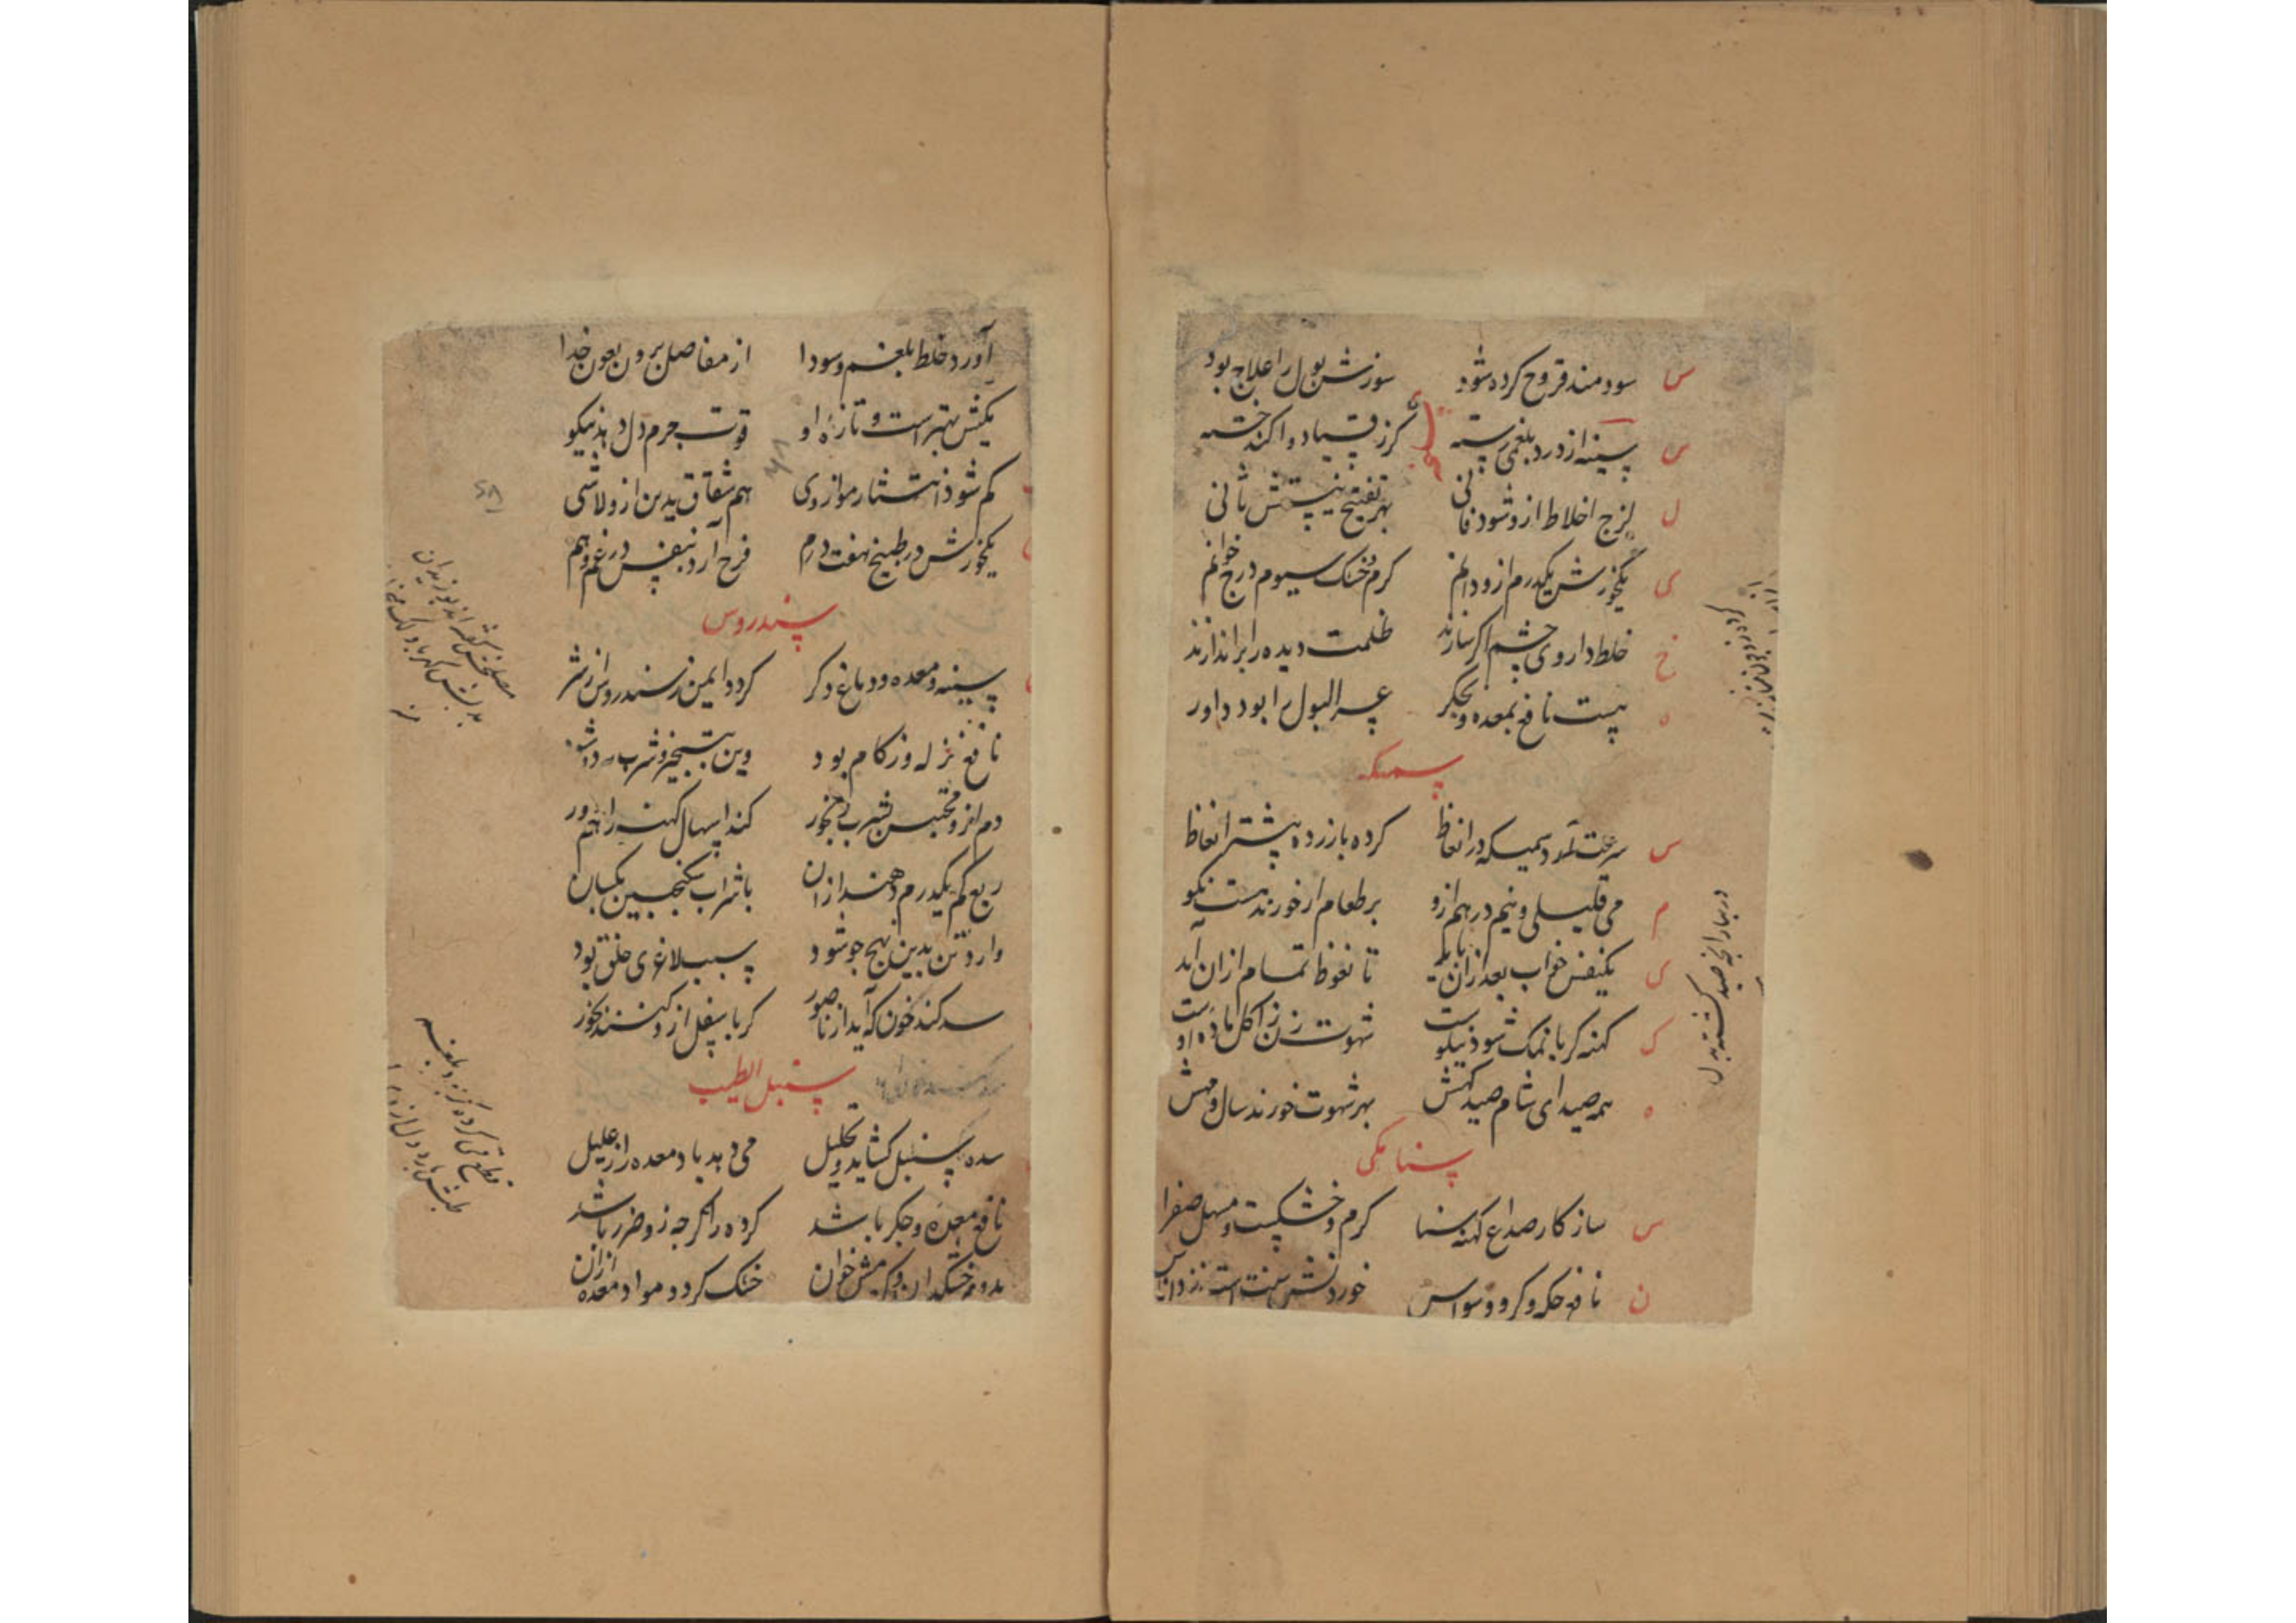 س سودمند قروح کرده شود سوزش بول را علاج بود
س سینه از درد بلغمی رسته گر زقی یاد واکند خسته
ل لزج اخلاط ازو شود فانی بهر تفتیح نیستش ثانی
ی یکخورش یکدرم ازو دانم گرم و خشک سیوم درج خوانم
خ خلط داروی چشم اگر سازند ظلمت دیده را براندازند
ه هست نافع بمعده و بجگر عسر البول را بود داور
سمیکه
س سرعت آمد سمیکه در انعاظ کرده با زرده بیشتر انعاظ
م می قلیلی و نیم درهم ازو بر طعام ار خورند هست نکو
ی یکنفس خواب بعد ازان باید تا نعوظ تمام ازان آید
ک کهنه گر با نمک شود نیکوست شهوت زن ز اکل ماده اوست
ه همه صیدای شام صید کهنش بهر شهوت خورند سال و مهش
سنا مکی
س سازکار صداع کهنه سنا گرم و خشکست و مسهل صفرا
ن نافع حکه و گر و وسواس خوردنش سنت است نزد اناس
در بهار آنچه صید گشته بدل
آورد خلط بلغم و سودا از مفاصل برون بعون خدا
مکیش بهتر است و تازه او قوت جرم دل دهد نیکو
کم شود انتشار مو از وی هم شقاق بدن ازو لاشی
یکخورش در طبیخ هفت درم فرح آرد بنفس در غم و هم
سندروس
سینه و معده و دماغ و گر گردد ایمن ز سندروس از شر
نافع نزله و زکام بود وین بتبخیر و شرب
دم ازو محتبس بشرب و بخور کند اسهال کهنه را هم دور
ربع کم یکدرم دهند ازان با شراب سکنجبین یکسان
وارد تن بدین نهج چو شود سبب لاغری خلق بود
سد کند خون که آید از ناصور گر باسفل ازو کنند بخور
سنبل الطیب
سده سنبل گشاید و تحلیل می دهد باد معده را ز علیل
نافع معده و جگر باشد گرده را گرچه زو ضرر باشد
بدوم خشکدار و گرمش خوان خشک گردد مواد معده ازان